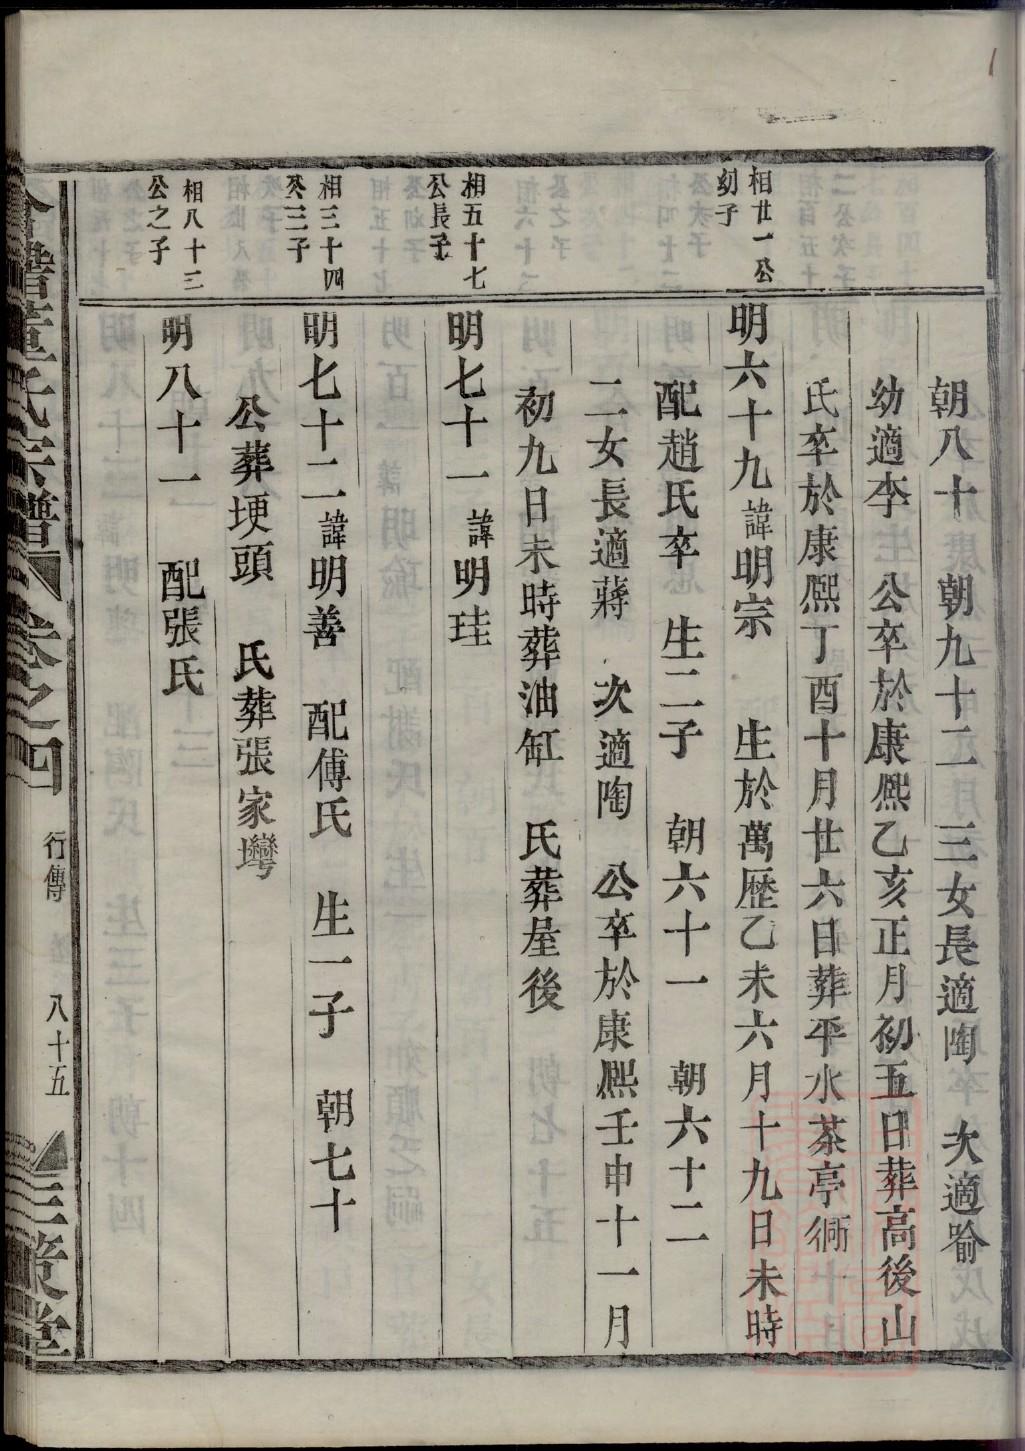 朝八十　朝九十二　三女長適陶　次適喻
幼適李　公卒於康熈乙亥正月初五日葬高後山
氏卒於康熈丁酉十月廿六日葬平水茶亭衕
相廿一公
幼子
明六十九諱明宗　生於萬歷乙未六月十九日未時
配趙氏卒　生二子　朝六十一　朝六十二
二女長適蔣　次適陶　公卒於康熈壬申十一月
初九日未時葬油缸　氏葬屋後
相五十七
公長子
明七十一諱明珪
相三十四
公三子
明七十二諱明善　配傅氏　生一子　朝七十
公葬埂頭　氏葬張家壪
相八十三
公之子
明八十一　配張氏
董氏宗譜　卷之四　行傳　八十五　三策堂